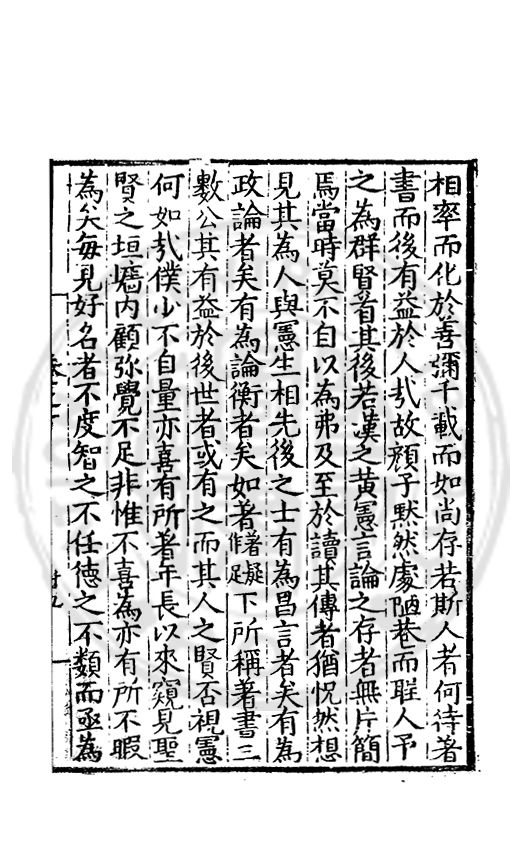 相率而化於善彌千載而如尚存若斯人者何待著
書而後有益於人㢤故顔子黙然處陋巷而聖人予
之為群賢首其後若漢之黄憲言論之存者無片簡
焉當時莫不自以為弗及至於讀其傳者猶怳然想
見其為人與憲生相先後之士有為昌言者矣有為
政論者矣有為論衡者矣如著作著疑足下所稱著書三
數公其有益於後世者或有之而其人之賢否視憲
何如㢤僕少不自量亦喜有所著年長以來窺見聖
賢之垣墉内顧弥覺不足非惟不喜為亦有所不暇
為矣每見好名者不度智之不任徳之不類而亟為